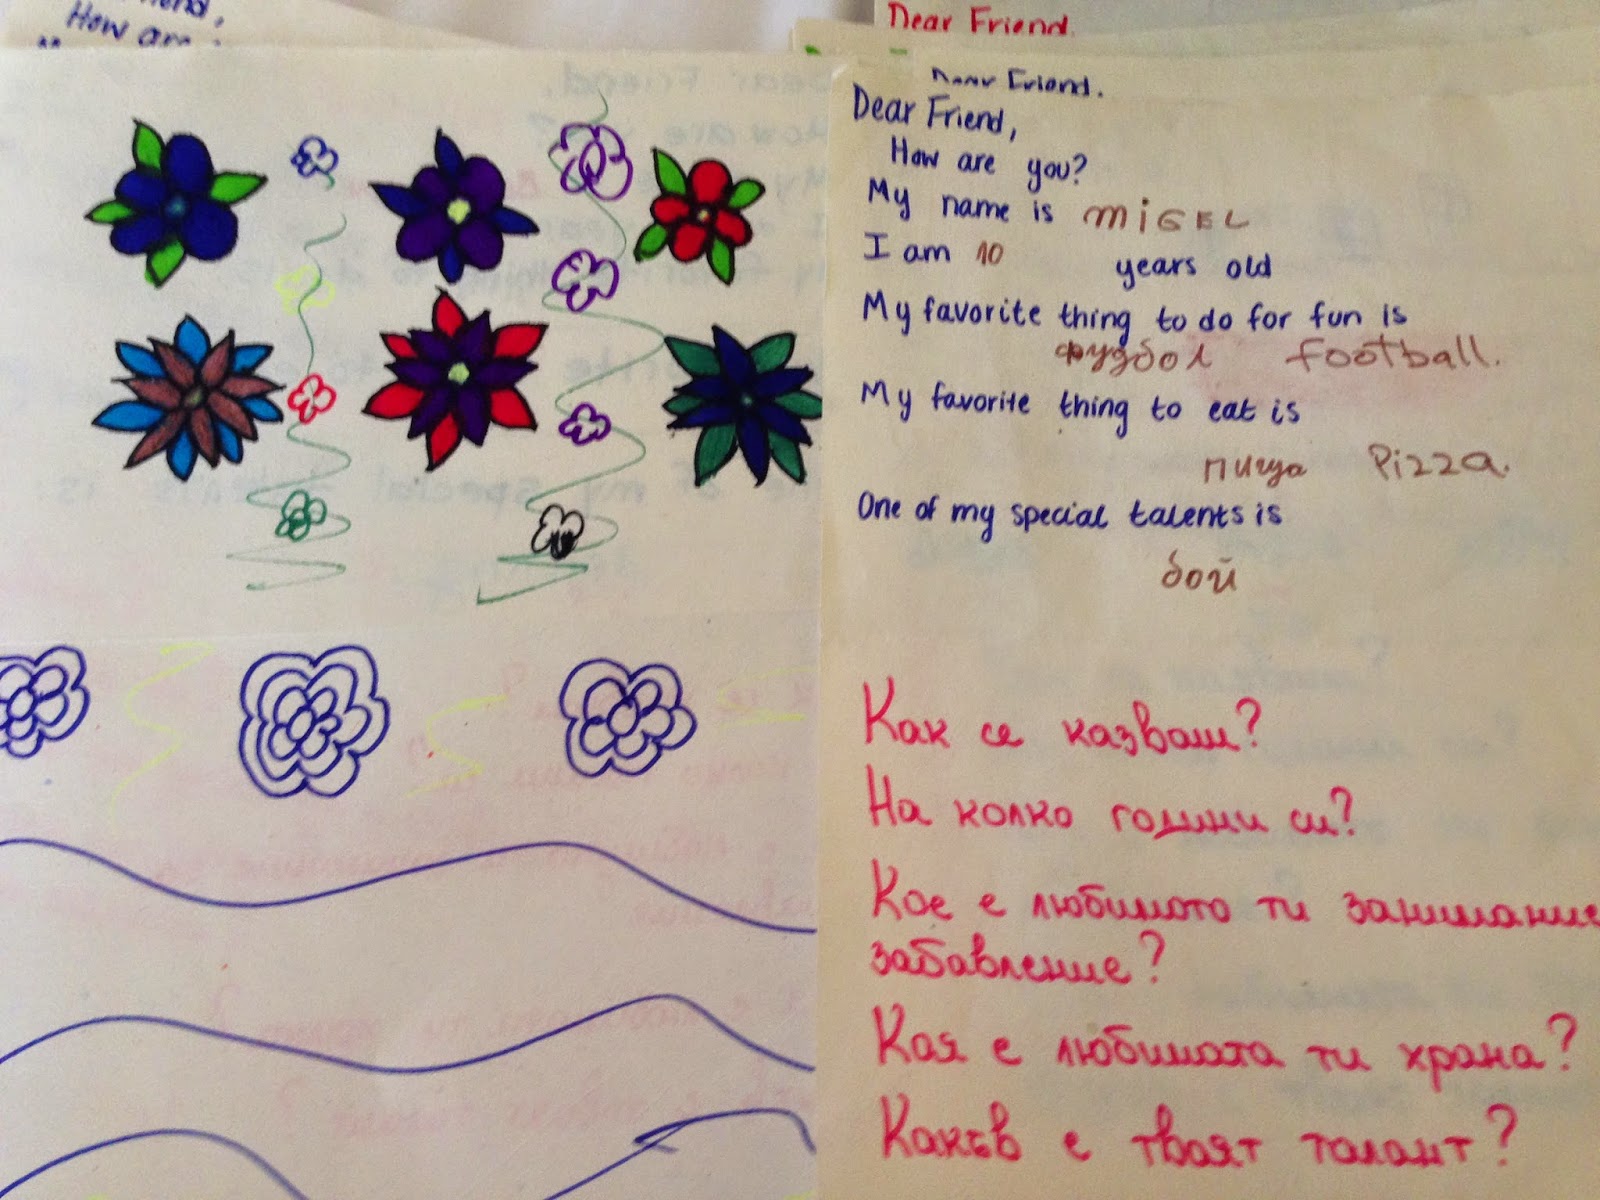 How are
Dear Friend.
Friend.
Dear Friend,
How are you?
My name is MiGEL
I am 10 years old
My favorite thing to do for fun is
фудбол football.
My favorite thing to eat is
пица Pizza.
One of my special talents is
бой
Как се казваш?
На колко години си?
Кое е любимото ти занимание
забавление?
Коя е любимата ти храна?
Какъв е твоят талант?